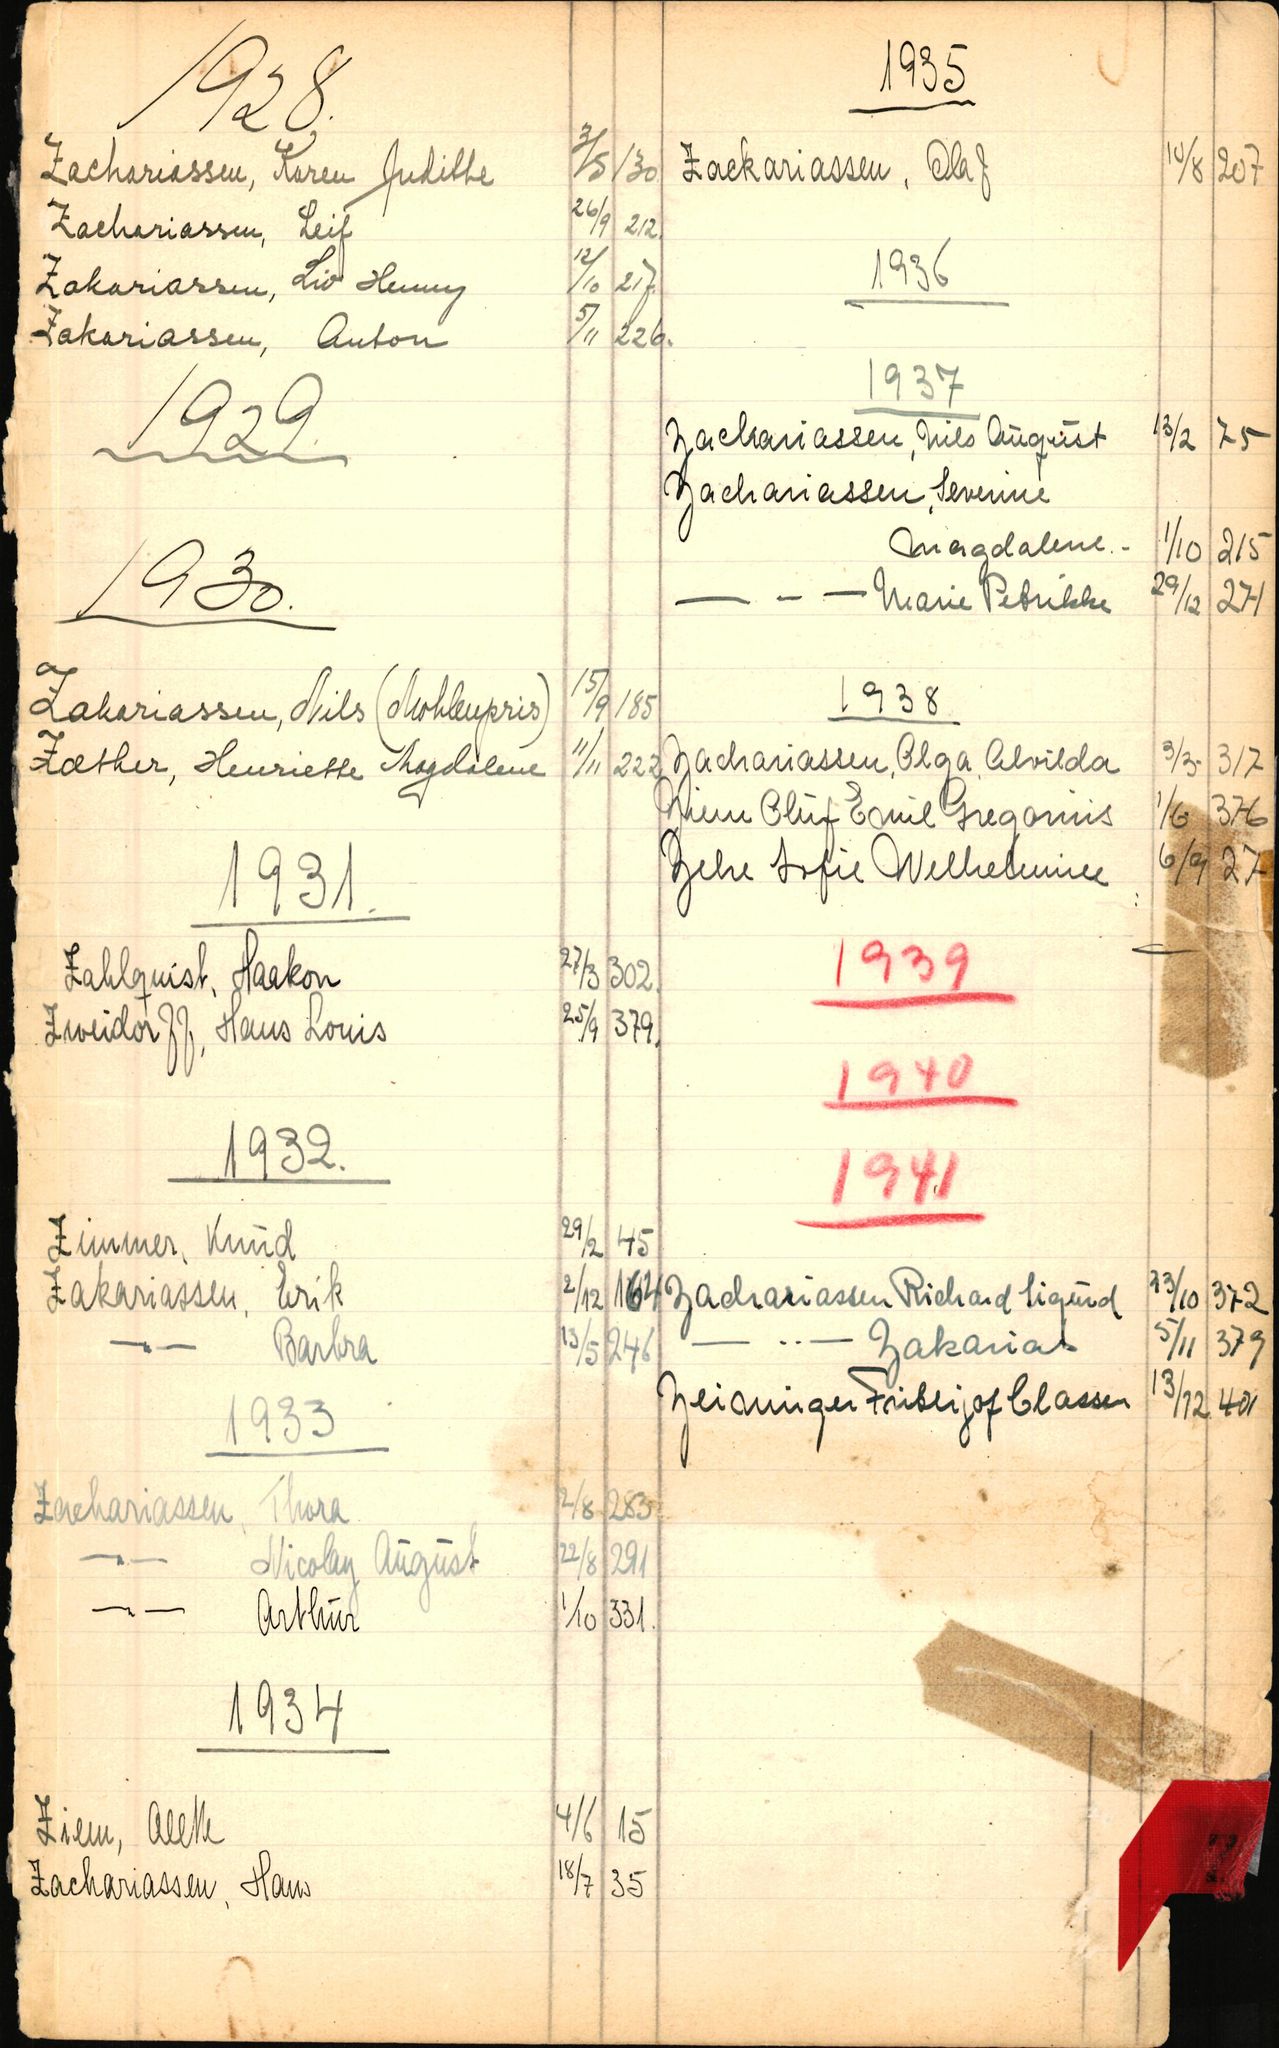 1928.
Zachariassen, Karen Judithe 3/5 130
Zachariassen, Leif 26/9 212.
Zakariassen, Liv Henny 12/10 217.
Zakariassen, Anton 5/11 226.
1929.
1930.
Zakariassen, Nils (Møhlenpris) 15/9 185
Zæther, Henriette Magdalene 11/11 222
1931.
Zahlquist, Haakon 27/3 302.
Zweidorff, Hans Louis 25/9 379.
1932.
Zimmer, Knud 29/2 45
Zakariassen, Erik 2/12 164
—„— Barbra 13/5 246
1933
Zachariassen, Thora 2/8 283
—„— Nicolay August 22/8 291
—„— Arthur 1/10 331.
1934
Ziem, 4/6 15
Zachariassen, Hans 18/7 35
1935
Zackariassen, Olaf 14/8 207
1936
1937
Zachariassen, Nils August 13/2 75
Zachariassen, Severine
Magdalene.- 1/10 215
— „ — Marie Petrikke 29/12 271
1938
Zachariassen, Olga Alvilda 3/3 317
Ziem Oluf Emil Gregorius 1/6 376
Sofie 6/9 27
1939
1940
1941
Zachariassen Richard Sigurd 23/10 372
— „ — Zakarias 5/11 379
Fritjof Classen 13/12 401
Z